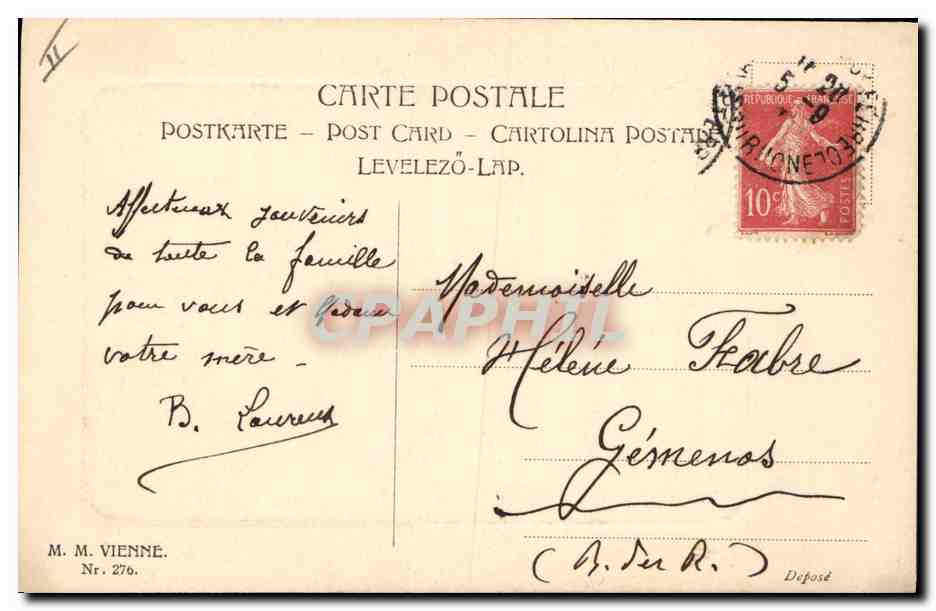 II
CARTE POSTALE
POSTKARTE – POST CARD – CARTOLINA POSTALE
LEVELEZŐ-LAP.
REPUBLIQUE FRANÇAISE
10c
POSTES
Affectueux souvenirs
de toute la famille
pour vous et Madame
votre mère –
B. Laurent
CPAPHIL
Mademoiselle
Hélène Fabre
Gémenos
(B. des R.)
M. M. VIENNE.
Nr. 276.
Deposé